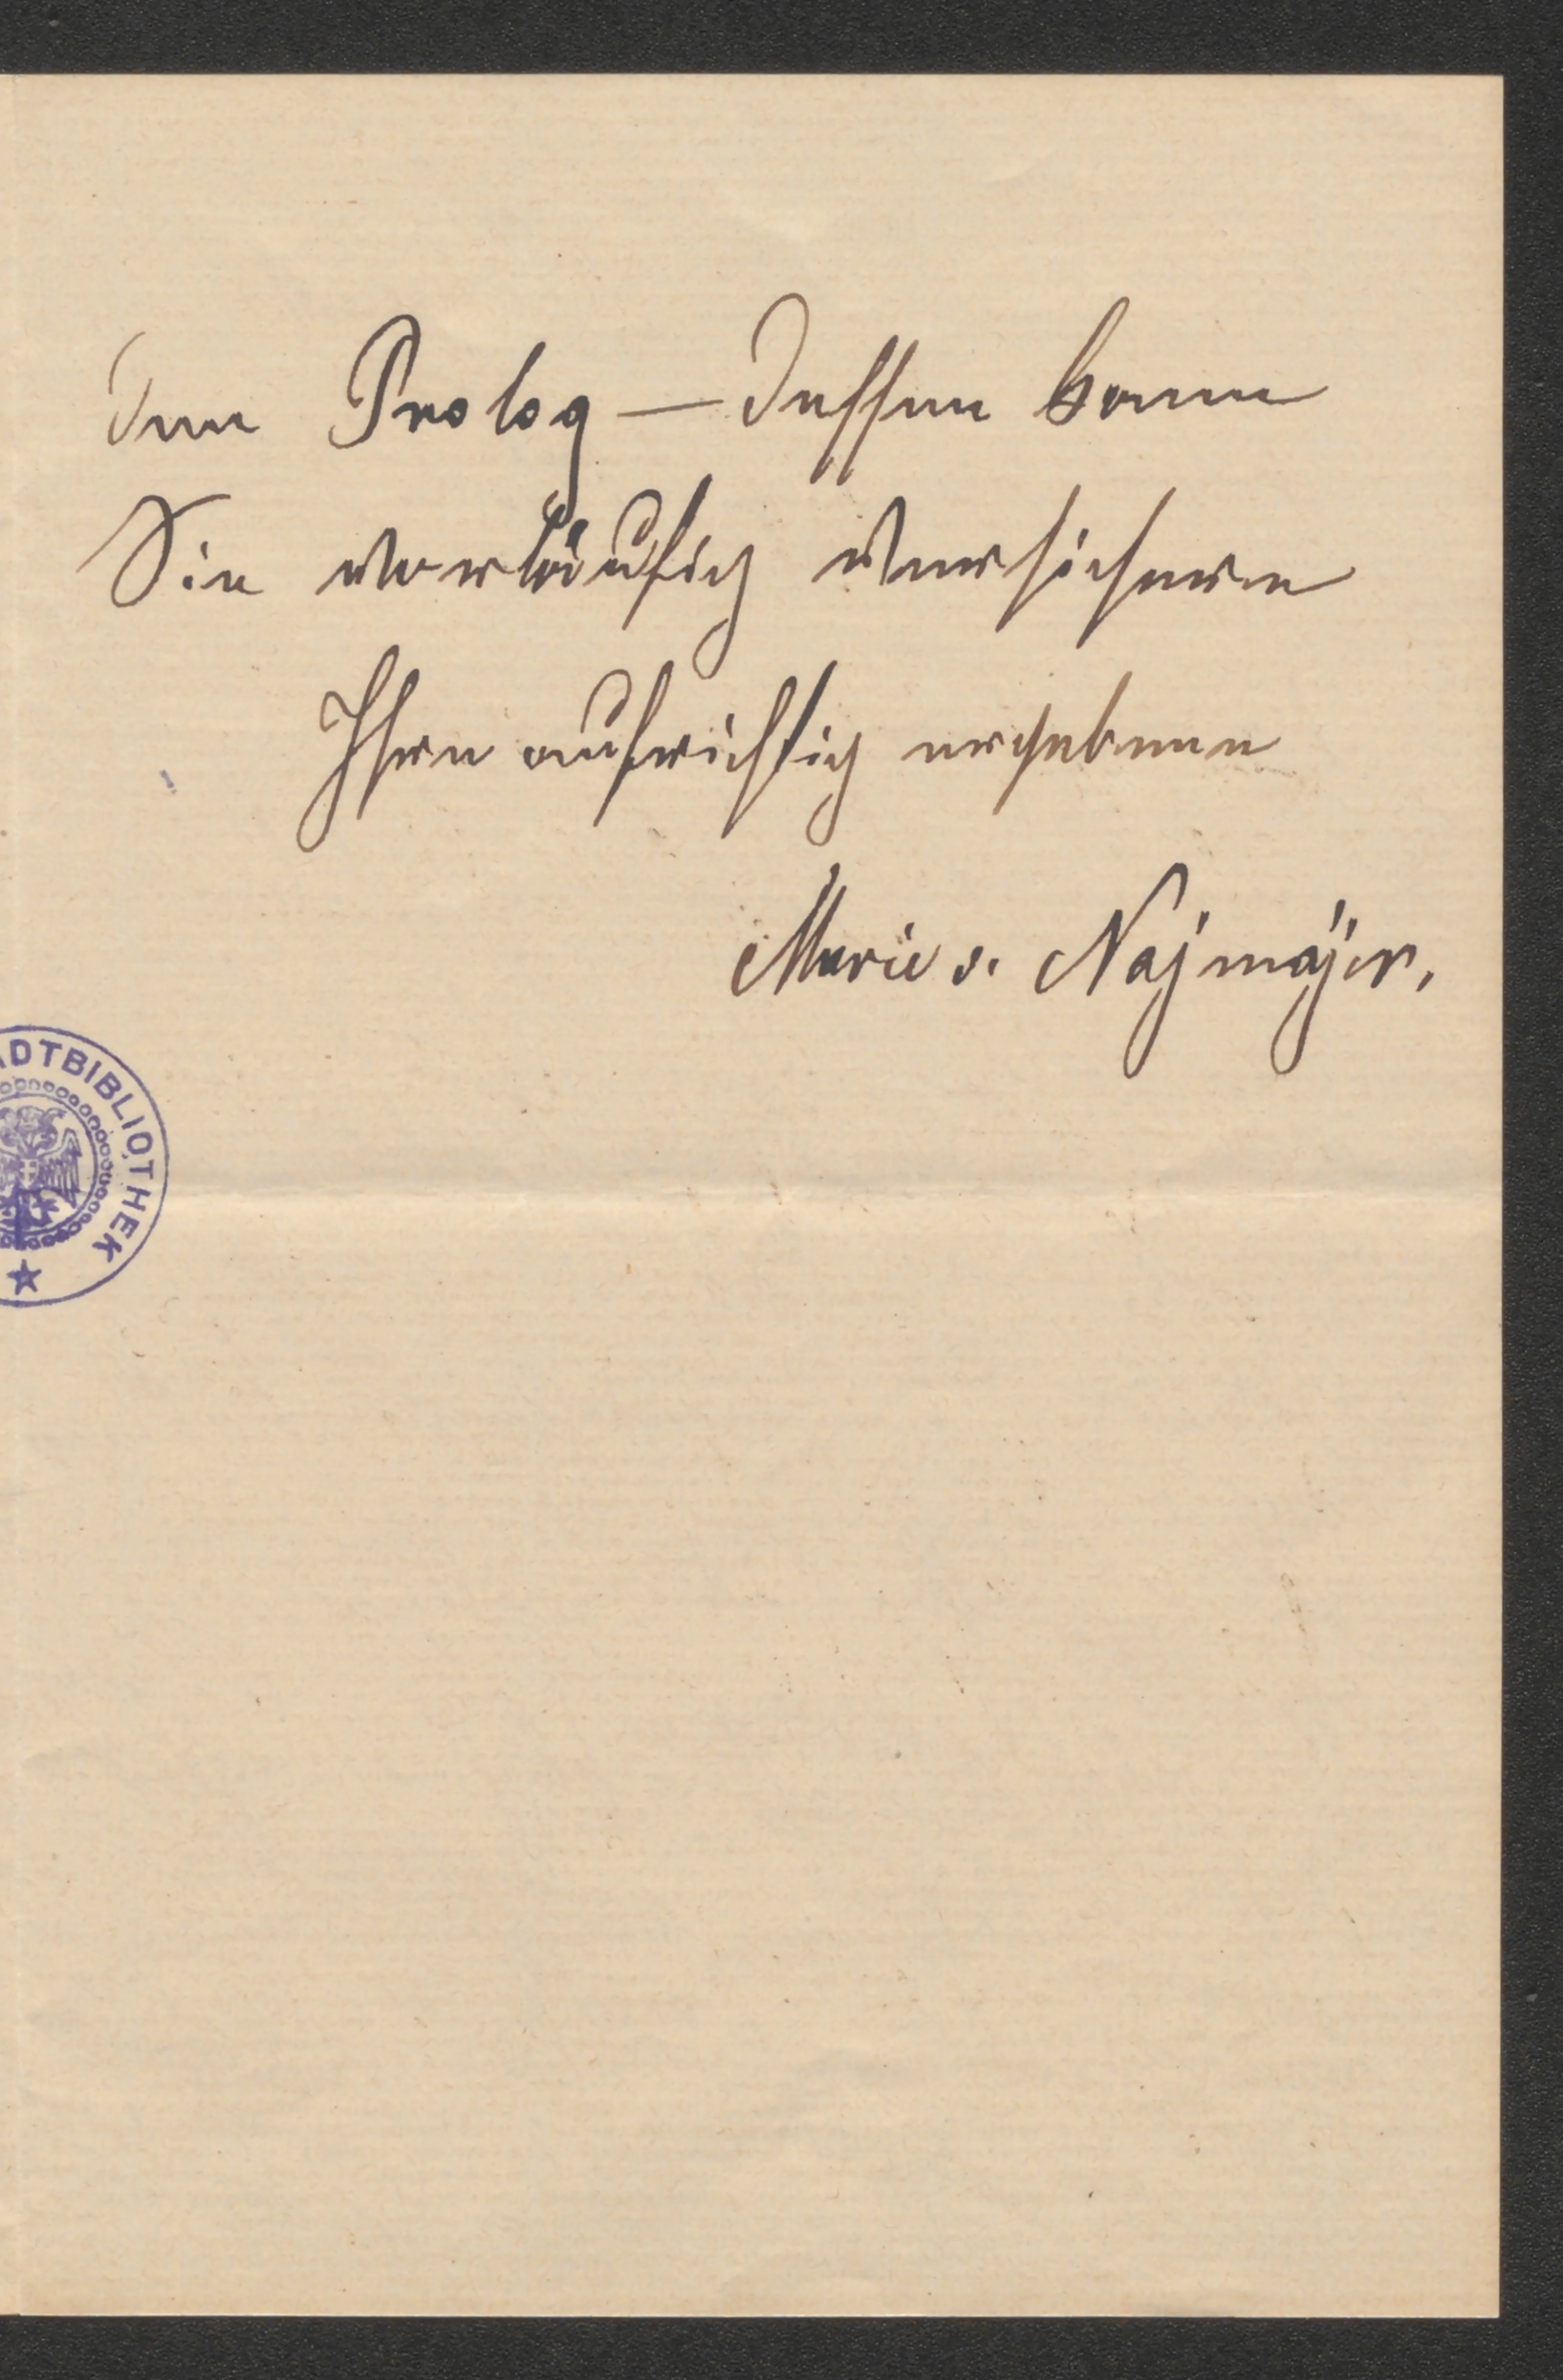 den Prolog — dessen kann
Sie vorläufig versichern
Ihre aufrichtig ergebene
Marie v. Najmájer.
ADTBIBLIOTHEK